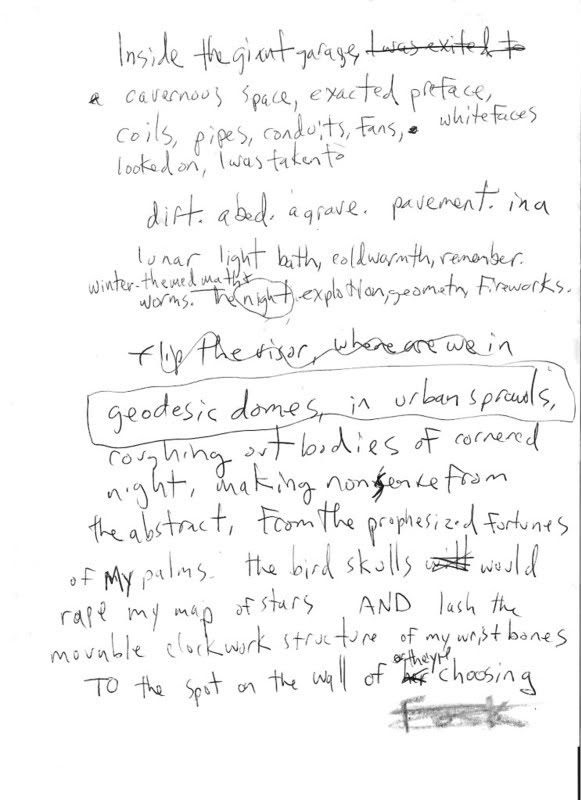 Inside the giant garage, I was exited to
a cavernous space, exacted preface,
coils, pipes, conduits, fans, white faces
looked on, I was taken to
dirt. a bed. a grave. pavement. in a
lunar light bath, coldwarmth, remember.
winter-themed math
worms. The night. explotion, geometry, Fireworks.
flip the visor, where are we in
geodesic domes, in urban sprawls,
roughing out bodies of cornered
night, making nonsense from
the abstract, From the prophesized fortunes
of My palms. the bird skulls will would
rape my map of stars AND lash the
movable clockwork structure of my wrist bones
TO the spot on the wall of they're choosing